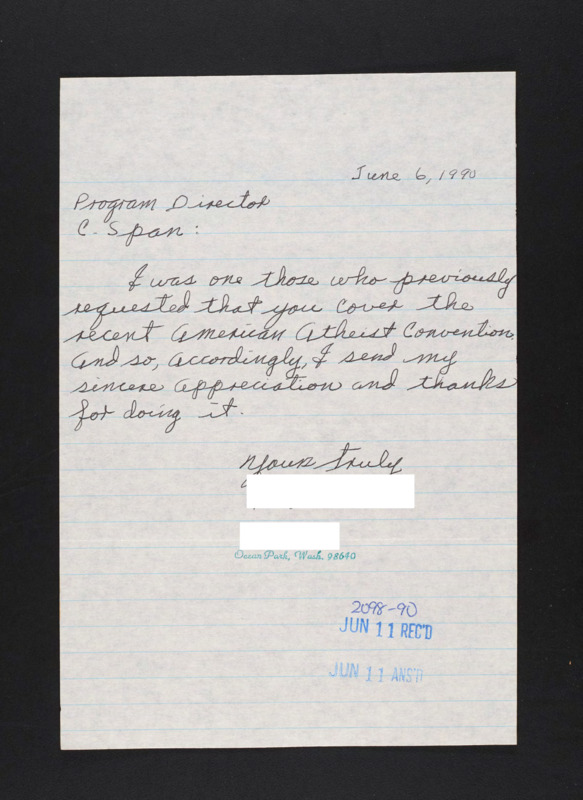 June 6, 1990
Program Director
C-Span:
I was one those who previously
requested that you cover the
recent American Atheist Convention.
And so, accordingly, I send my
sincere appreciation and thanks
for doing it.
Yours Truly
Ocean Park, Wash. 98640
2098-90
JUN 11 REC'D
JUN 11 ANS'D